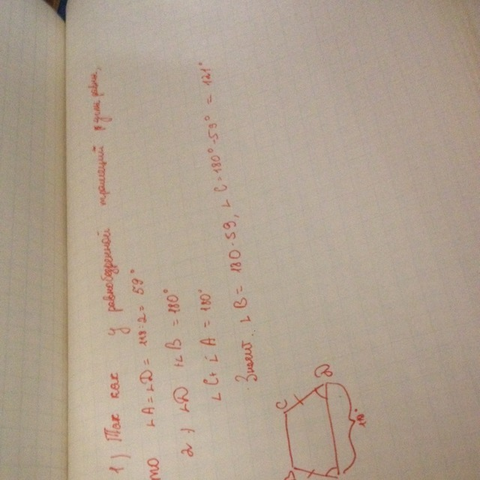 1) Так как у равнобедренной трапеций 2 угла равны,
то ∠A = ∠D = 118:2 = 59°
2) ∠D + ∠B = 180°
∠C + ∠A = 180°
Значит: ∠B = 180-59, ∠C = 180°-59° = 121°
C
D